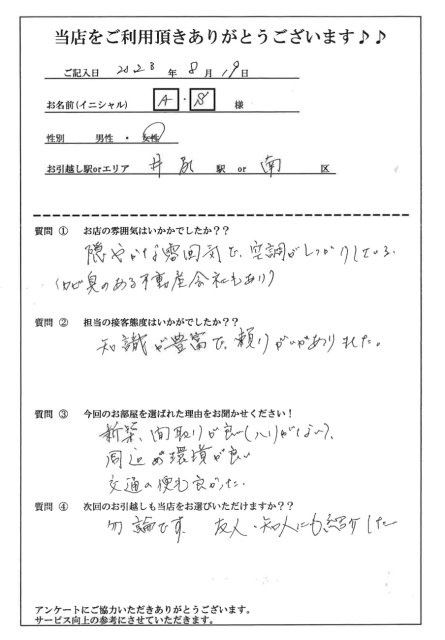 当店をご利用頂きありがとうございます♪♪
ご記入日 2023 年 8 月 19 日
お名前(イニシャル) A ・ S 様
性別 男性 ・ 女性
お引越し駅orエリア 井尻 駅 or 南 区
質問 ① お店の雰囲気はいかかでしたか??
穏やかな雰囲気で、空調がしっかりしている。
(カビ臭のある不動産会社もあり)
質問 ② 担当の接客態度はいかがでしたか??
知識が豊富で、頼りがいがありました。
質問 ③ 今回のお部屋を選ばれた理由をお聞かせください!
新築、間取りが良い(ハリがない)、
周辺の環境が良い
交通の便も良かった
質問 ④ 次回のお引越しも当店をお選びいただけますか??
勿論です。 友人・知人にも紹介した
アンケートにご協力いただきありがとうございます。
サービス向上の参考にさせていただきます。